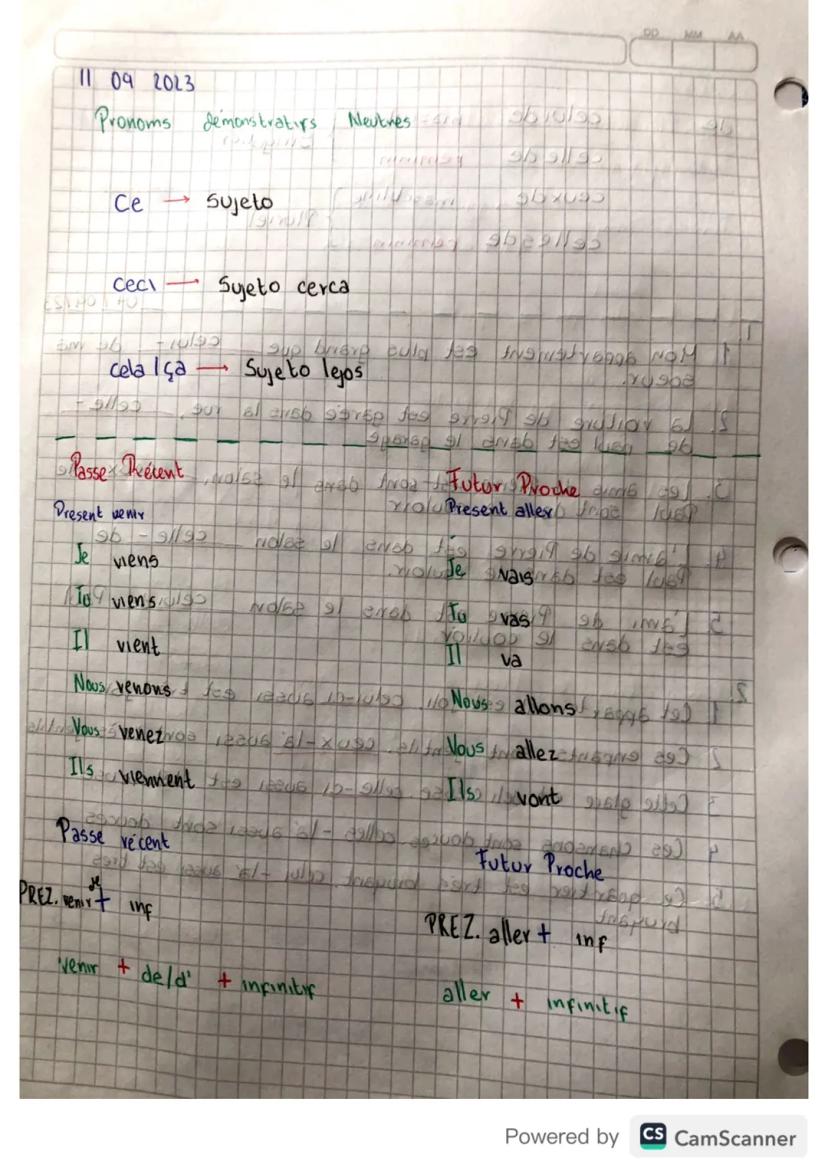 DD MM AA
11 09 2023
Pronoms démonstratifs Neutres
Ce → Sujeto
Ceci → Sujeto cerca
cela/ça → Sujeto lejos
Passe Récent
Present venir
Je viens
Tu viens
Il vient
Nous venons
Vous venez
Ils viennent
Passe récent
PREZ. venir + de inf
venir + de/d' + infinitif
Futur Proche
Present aller
Je vais
Tu vas
Il va
Nous allons
Vous allez
Ils vont
Futur Proche
PREZ. aller + inf
aller + infinitif
Powered by CS CamScanner